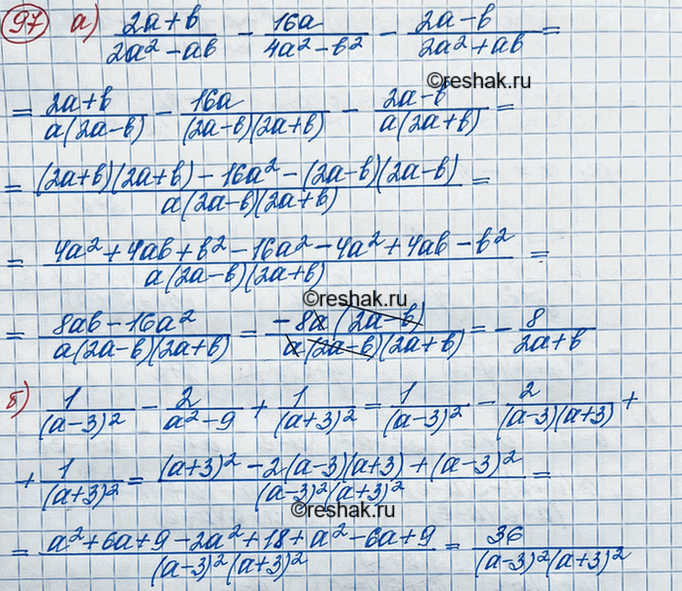 97 а) (2a+b)/(2a²−ab) − 16a/(4a²−b²) − (2a−b)/(2a²+ab) =
©reshak.ru
= (2a+b)/(a(2a−b)) − 16a/((2a−b)(2a+b)) − (2a−b)/(a(2a+b)) =
= ((2a+b)(2a+b) − 16a² − (2a−b)(2a−b))/(a(2a−b)(2a+b)) =
= (4a²+4ab+b²−16a²−4a²+4ab−b²)/(a(2a−b)(2a+b)) =
©reshak.ru
= (8ab−16a²)/(a(2a−b)(2a+b)) = (−8a(2a−b))/(a(2a−b)(2a+b)) = −8/(2a+b)
б) 1/(a−3)² − 2/(a²−9) + 1/(a+3)² = 1/(a−3)² − 2/((a−3)(a+3)) +
+ 1/(a+3)² = ((a+3)² − 2(a−3)(a+3) + (a−3)²)/((a−3)²(a+3)²) =
©reshak.ru
= (a²+6a+9−2a²+18+a²−6a+9)/((a−3)²(a+3)²) = 36/((a−3)²(a+3)²)